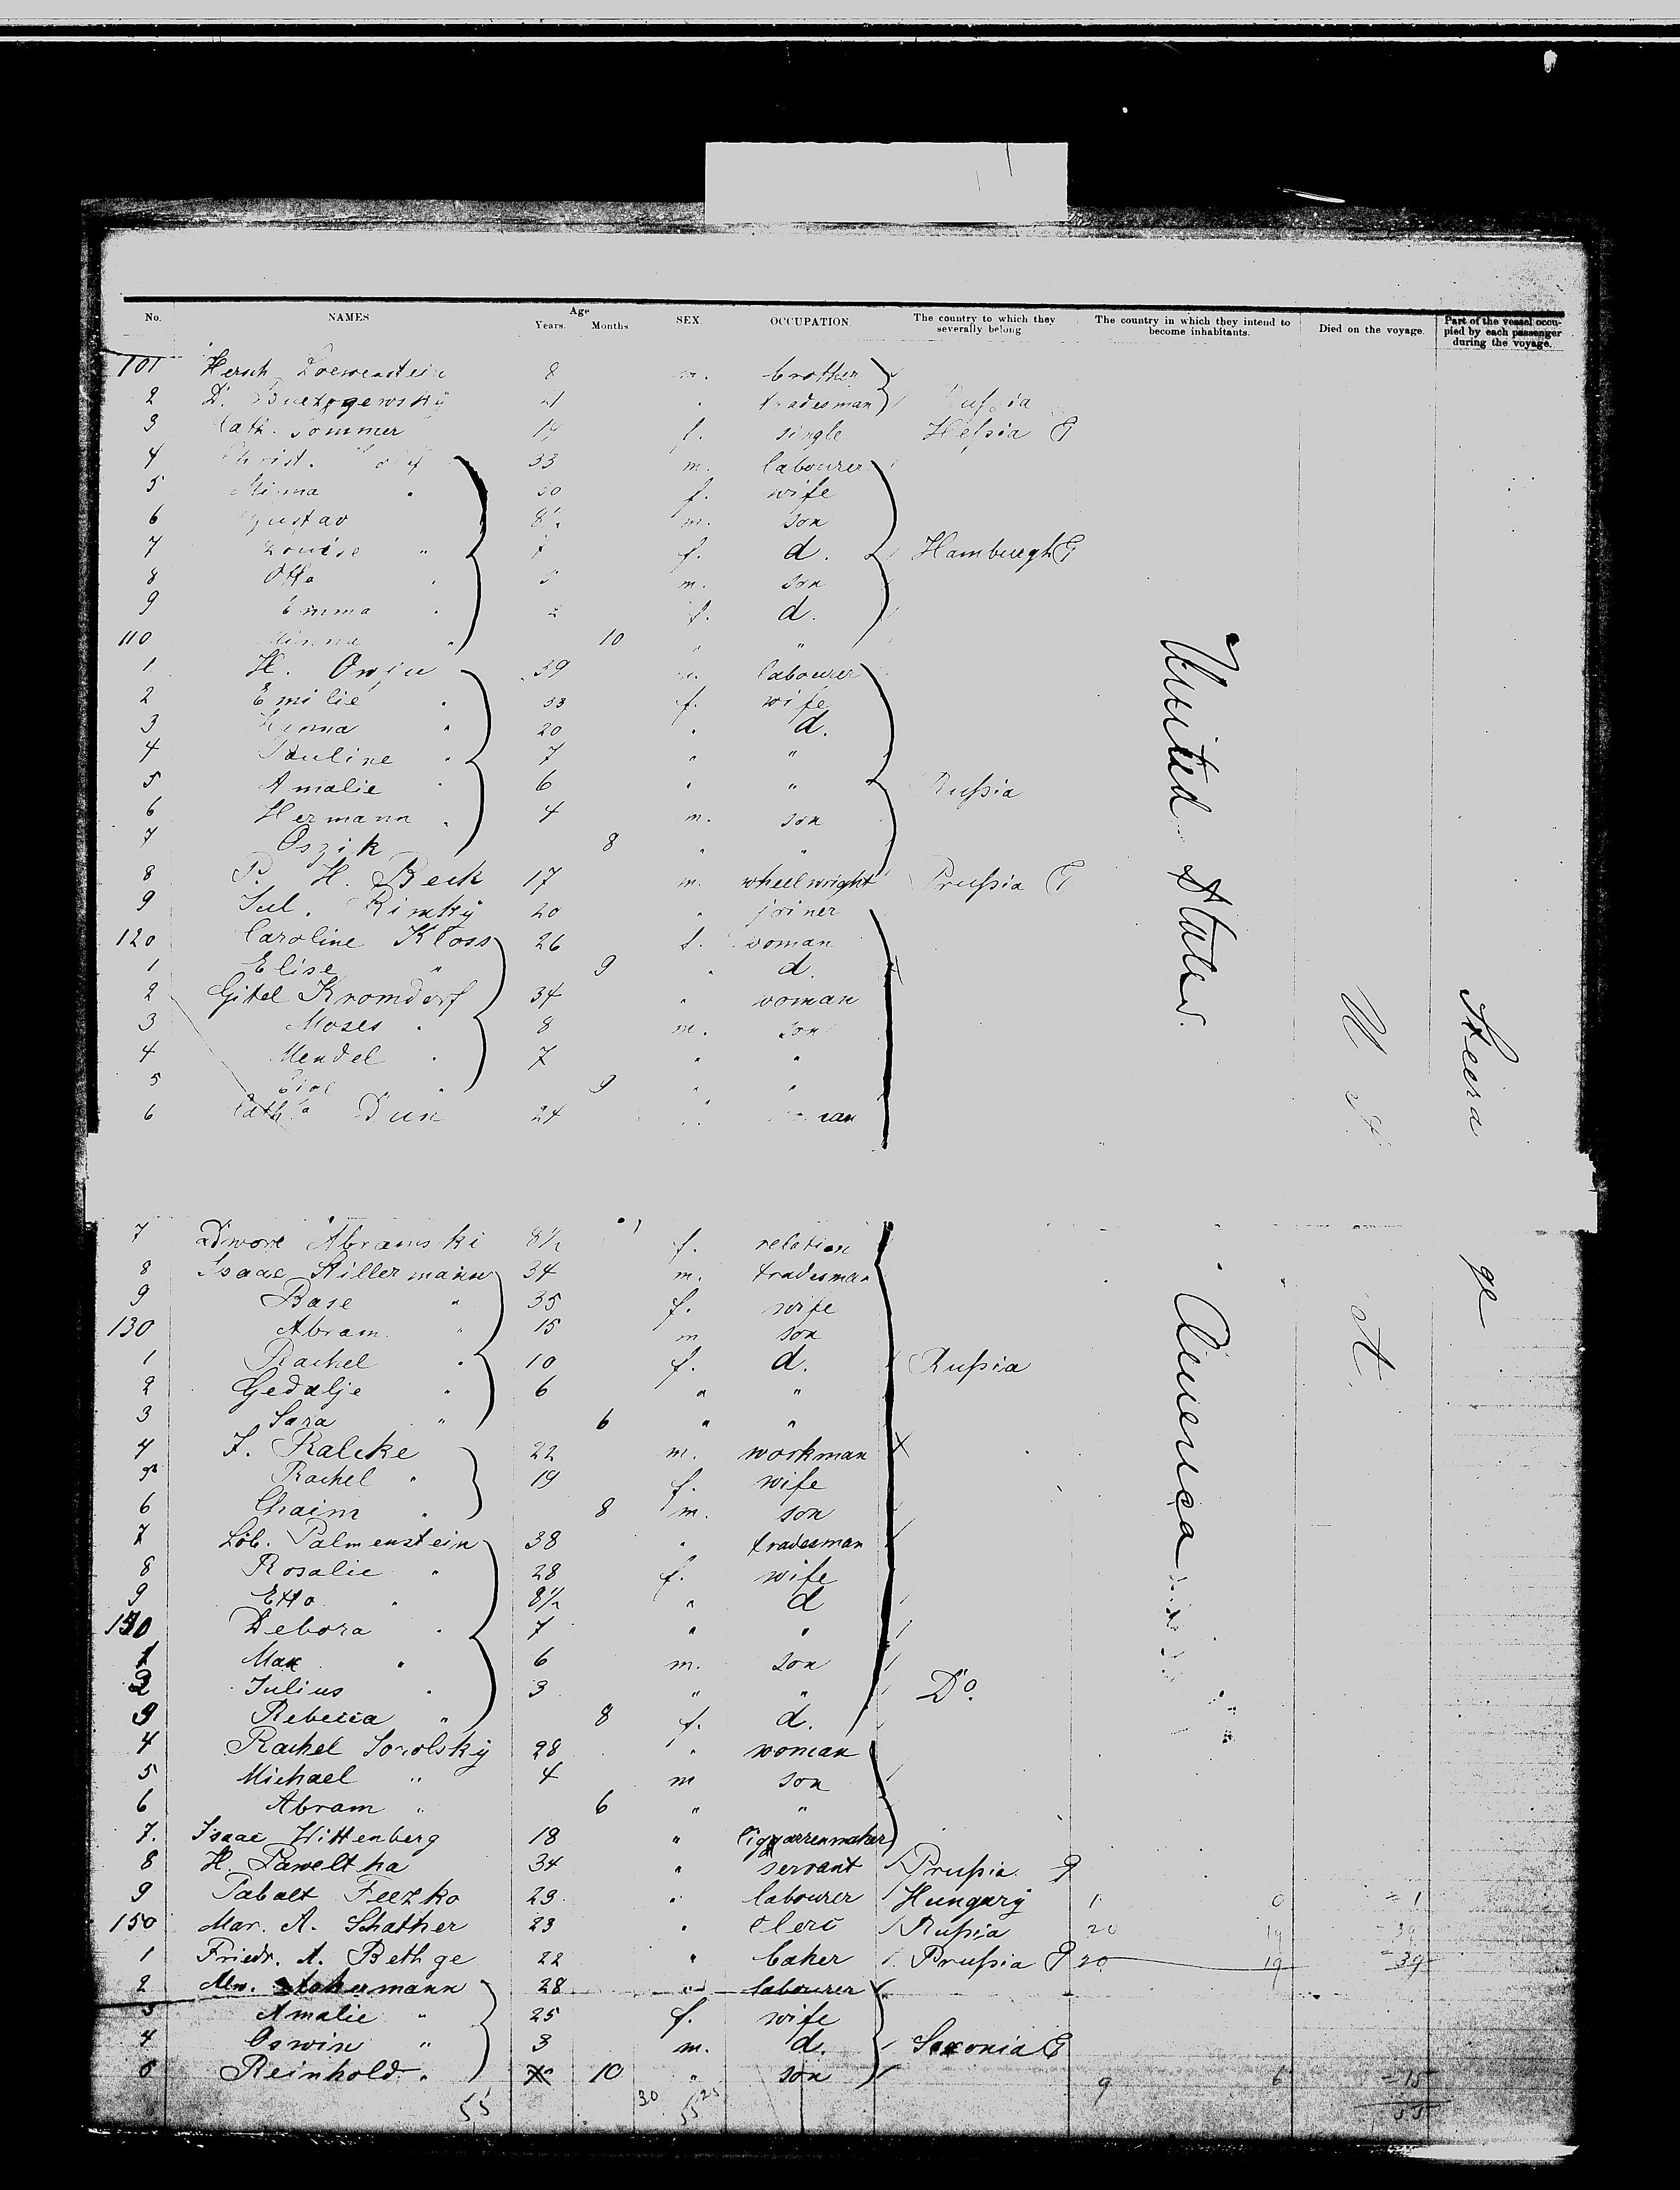 No. NAMES Age Years. Months SEX. OCCUPATION. The country to which they severally belong. The country in which they intend to become inhabitants. Died on the voyage. Part of the vessel occupied by each passenger during the voyage.
101 Hersch Loewenstein 8 m. brother
2 D. 21 " tradesman Russia
3 Cath. Sommer 19 f. single Hessia G
4 Christ. 33 m. labourer
5 Minna " 30 f. wife
6 Gustav 8½ m. son
7 Louise " 7 f. d. Hamburgh G
8 Otto " 5 m. son
9 Emma " 2 f. d.
110 Minna " 10 " "
1 H. Onju 39 m. labourer
2 Emilie " 33 f. wife
3 " 20 " d.
4 Pauline " 7 " "
5 Amalie " 6 " " Russia
6 Hermann " 4 m. son
7 Oszik 8 " "
8 P. H. Beck 17 m. wheelwright Prussia G
9 Jul. Rimky 20 " joiner
120 Caroline Kloss 26 f. woman
1 Elise " 9 " d.
2 Gitel Kromdorf 34 " woman
3 Moses " 8 m. son
4 Mendel " 7 " "
5 " 9 " "
6 Cath. Dun 24
United States
U S
Steera
7 Dwore Abramski 8½ f. relation
8 Isaac Hillermann 34 m. tradesman
9 Base " 35 f. wife
130 Abram " 15 m son
1 Rachel " 10 f. d. Russia
2 Gedalje " 6 " "
3 Sara " 6 " "
4 J. Ralcke 22 m. workman
5 Rachel " 19 f. wife
6 Chaim " 8 m. son
7 Löb. Palmenstein 38 " tradesman
8 Rosalie " 28 f. wife
9 Etta " 8½ " d
140 Debora " 7 " "
1 Max " 6 m. son
2 Julius " 3 " " Do.
3 Rebecca " 8 f. d.
4 Rachel Sorolsky 28 " woman
5 Michael " 4 m son
6 Abram " 6 " "
7. Isaac Wittenberg 18 " Ciggarrenmaker
8 H. Paweltka 34 " servant Prussia G
9 Tabalt Feezko 29 " labourer Hungary 1 0 = 1
150 Mar. A. Schather 23 " Clerc Russia 20 19 39
1 Friedr. A. Bethge 22 " baker Prussia G 20 19 = 39
2 Alw. 28 " labourer
3 Amalie " 25 f. wife
4 Oswin " 3 m. d. Saxonia G
5 Reinhold " 10 " son 9 6 = 15
55 30 25 55 55
America
A.
ge